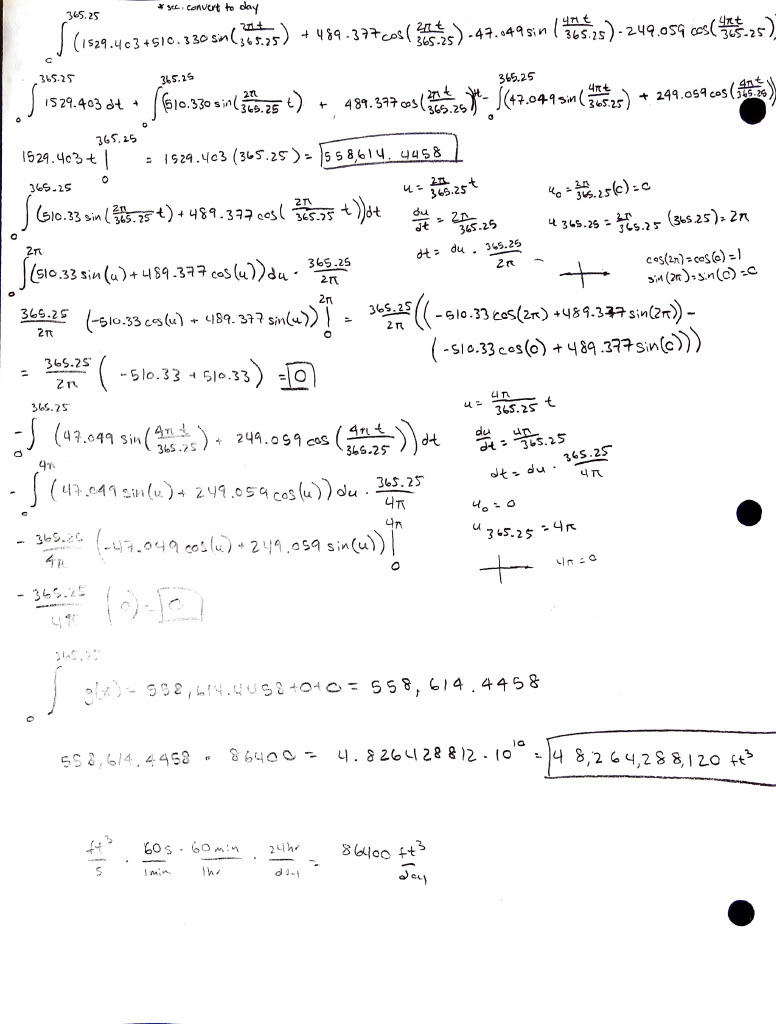 * sec. convert to day
∫₀^365.25 (1529.403 + 510.330 sin(2πt/365.25) + 489.377 cos(2πt/365.25) - 47.049 sin(4πt/365.25) - 249.059 cos(4πt/365.25))
∫₀^365.25 1529.403 dt + ∫₀^365.25 (510.330 sin(2π/365.25 t) + 489.377 cos(2πt/365.25))dt - ∫₀^365.25 (47.049 sin(4πt/365.25) + 249.059 cos(4πt/365.25))
1529.403 t |₀^365.25 = 1529.403 (365.25) = 558,614.4458
∫₀^365.25 (510.33 sin(2π/365.25 t) + 489.377 cos(2π/365.25 t))dt
u = 2π/365.25 t
du/dt = 2π/365.25
dt = du · 365.25/2π
u₀ = 2π/365.25 (0) = 0
u 365.25 = 2π/365.25 (365.25) = 2π
cos(2π) = cos(0) = 1
sin(2π) = sin(0) = 0
∫₀^2π (510.33 sin(u) + 489.377 cos(u)) du · 365.25/2π
365.25/2π (-510.33 cos(u) + 489.377 sin(u)) |₀^2π = 365.25/2π ((-510.33 cos(2π) + 489.377 sin(2π)) -
(-510.33 cos(0) + 489.377 sin(0)))
= 365.25/2π (-510.33 + 510.33) = 0
- ∫₀^365.25 (47.049 sin(4πt/365.25) + 249.059 cos(4πt/365.25)) dt
u = 4π/365.25 t
du/dt = 4π/365.25
dt = du · 365.25/4π
u₀ = 0
u 365.25 = 4π
4π = 0
- ∫₀^4π (47.049 sin(u) + 249.059 cos(u)) du · 365.25/4π
- 365.25/4π (-47.049 cos(u) + 249.059 sin(u)) |₀^4π
- 365.25/4π (0) = 0
∫₀^365.25 g(x) = 558,614.4458 + 0 + 0 = 558,614.4458
558,614.4458 · 86400 = 4.826428812 · 10^10 = 48,264,288,120 ft³
ft³/s · 60s/1min · 60min/1hr · 24hr/day = 86400 ft³/day